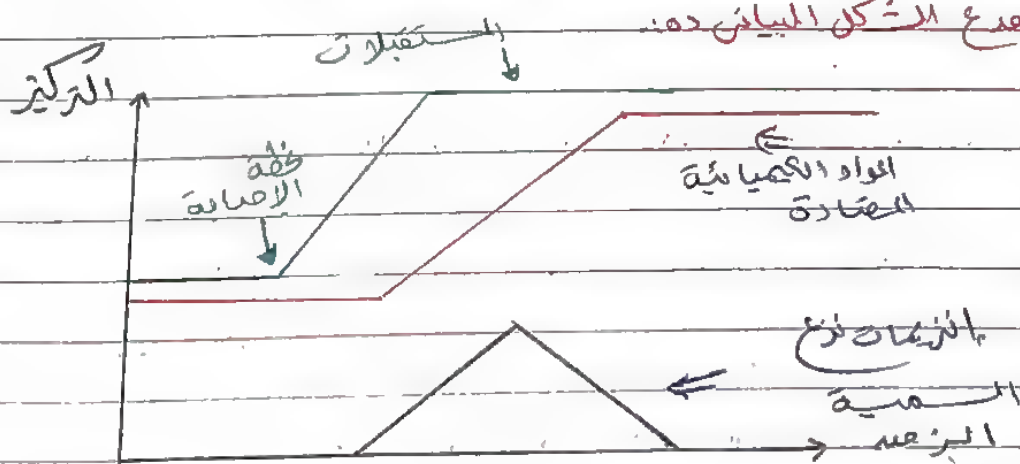 مع الشكل البياني ده:
المستقبلات
التركيز
لحظة
الاصابة
المواد الكيميائية
المضادة
إنزيمات نزع
السمية
الزمن